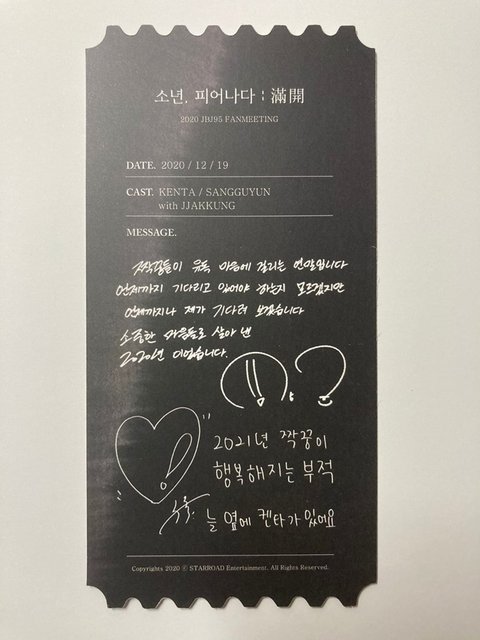 소년, 피어나다 ; 滿開
2020 JBJ95 FANMEETING
DATE. 2020 / 12 / 19
CAST. KENTA / SANGGUYUN
with JJAKKUNG
MESSAGE.
짝꿍들이 유독 마음에 걸리는 연말입니다
언제까지 기다리고 있어야 하는지 모르겠지만
언제까지나 제가 기다려 보겠습니다
소중한 마음들로 살아 낸
2020년 이었습니다.
2021년 짝꿍이
행복해지는 부적
늘 옆에 켄타가 있어요
Copyrights 2020 ⓒ STARROAD Entertainment. All Rights Reserved.